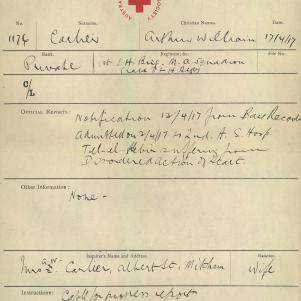 No. Surname. Christian Names.
1174 Carlier Arthur William 17/4/17
Rank. Regiment, &c. File No.
Private 1st L.H. Brig. M.G. Squadron
OFFICIAL REPORTS: Notification 12/4/17 from Base Records
Admitted on 2/4/17 to 2nd. A. S. Hosp
Tel-el-Kebir suffering from
Disordered Action of Heart
Other Information:
None -
Inquirer's Name and Address. Relation
Mrs Carlier, Albert St, Mitcham Wife
Instructions: Cable for progress report